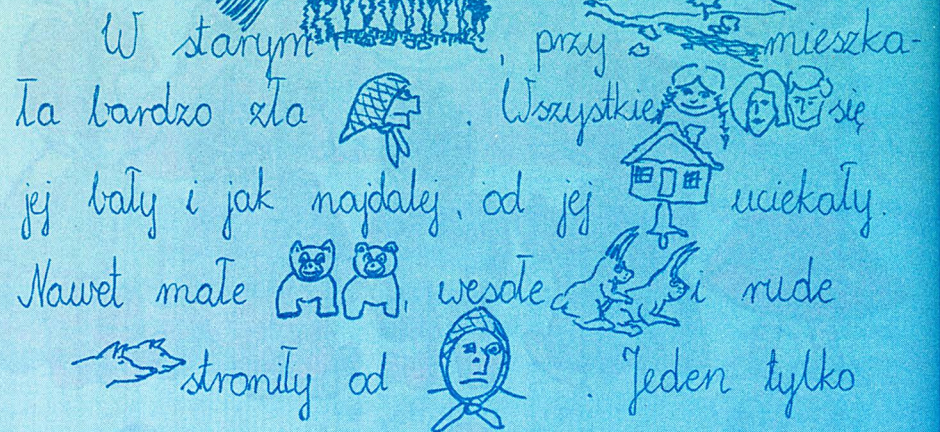 W starym , przy mieszka-
ła bardzo zła . Wszystkie się
jej bały i jak najdalej, od jej uciekały.
Nawet małe , wesołe i rude
stroniły od . Jeden tylko